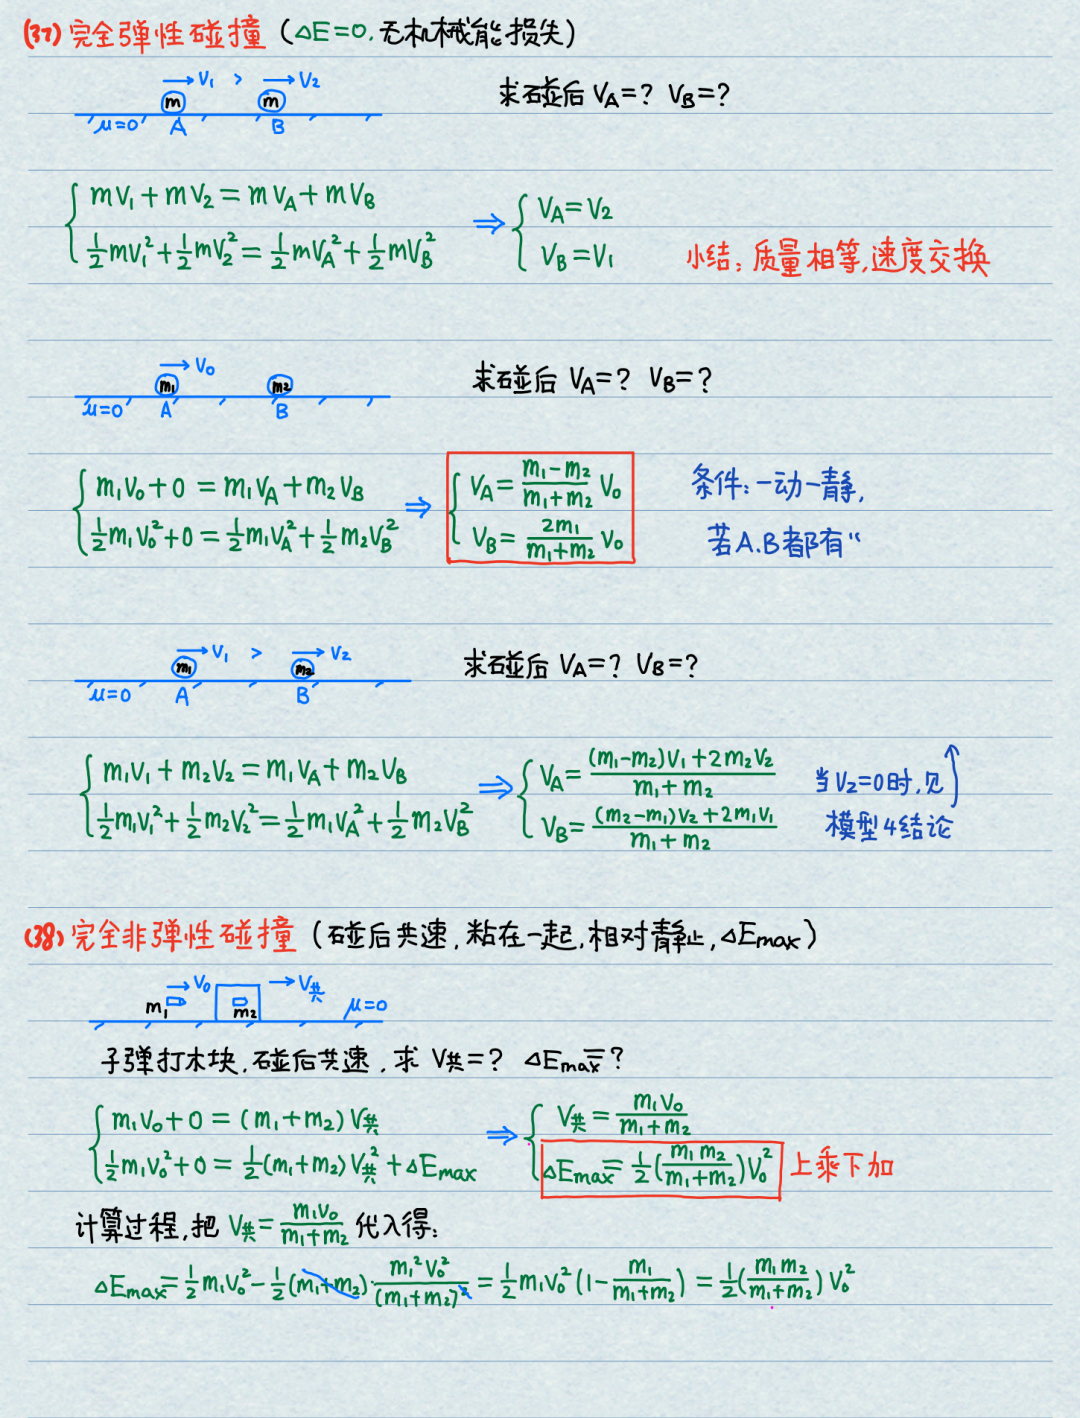 (37) 完全弹性碰撞 (△E=0. 无机械能损失)
V₁ > V₂
m m
μ=0 A B
求碰后 V_A=? V_B=?
mV₁+mV₂=mV_A+mV_B
½mV₁²+½mV₂²=½mV_A²+½mV_B²
⇒ V_A=V₂
V_B=V₁
小结: 质量相等,速度交换
V₀
m₁ m₂
μ=0 A B
求碰后 V_A=? V_B=?
m₁V₀+0=m₁V_A+m₂V_B
½m₁V₀²+0=½m₁V_A²+½m₂V_B²
⇒ V_A=\frac{m₁-m₂}{m₁+m₂}V₀
V_B=\frac{2m₁}{m₁+m₂}V₀
条件:一动一静,
若A.B都有“
V₁ > V₂
m₁ m₂
μ=0 A B
求碰后 V_A=? V_B=?
m₁V₁+m₂V₂=m₁V_A+m₂V_B
½m₁V₁²+½m₂V₂²=½m₁V_A²+½m₂V_B²
⇒ V_A=\frac{(m₁-m₂)V₁+2m₂V₂}{m₁+m₂}
V_B=\frac{(m₂-m₁)V₂+2m₁V₁}{m₁+m₂}
当V₂=0时,见↑
模型4结论
(38) 完全非弹性碰撞 (碰后共速,粘在一起,相对静止,△Emax)
V₀ V共
m₁ m₂ μ=0
子弹打木块,碰后共速,求 V共=? △Emax=?
m₁V₀+0=(m₁+m₂)V共
½m₁V₀²+0=½(m₁+m₂)V共²+△Emax
⇒ V共=\frac{m₁V₀}{m₁+m₂}
△Emax=½(\frac{m₁m₂}{m₁+m₂})V₀² 上乘下加
计算过程,把 V共=\frac{m₁V₀}{m₁+m₂} 代入得:
△Emax=½m₁V₀²-½(m₁+m₂)·\frac{m₁²V₀²}{(m₁+m₂)²}=½m₁V₀²(1-\frac{m₁}{m₁+m₂})=½(\frac{m₁m₂}{m₁+m₂})V₀²